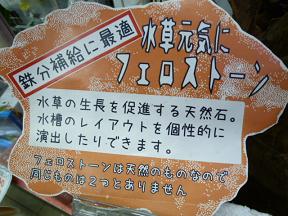 鉄分補給に最適
水草元気に
フェロストーン
水草の生長を促進する天然石。
水槽のレイアウトを個性的に
演出したりできます。
フェロストーンは天然のものなので
同じものは2つとありません